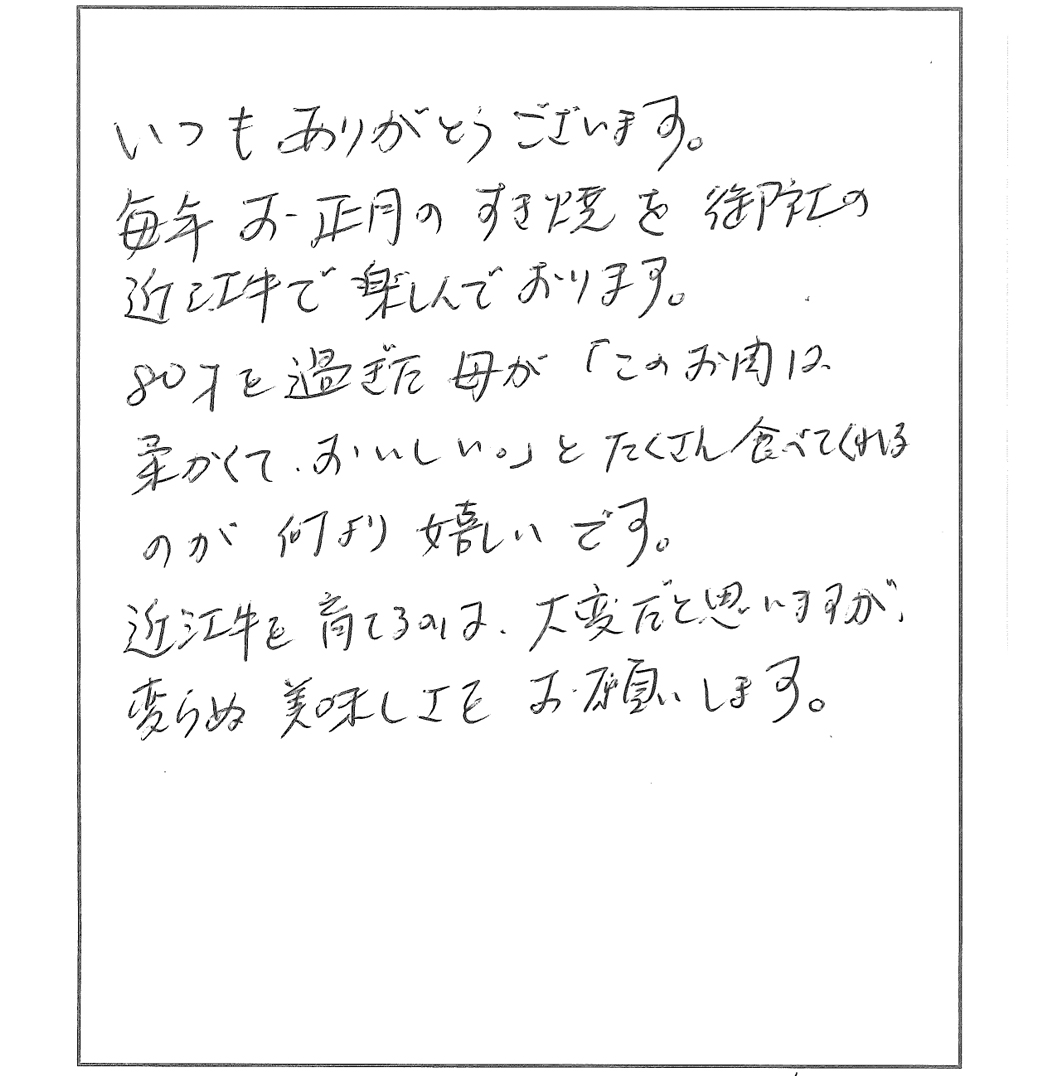 いつもありがとうございます。
毎年お正月のすき焼を御社の
近江牛で楽しんでおります。
80才を過ぎた母が「このお肉は、
柔かくて、おいしい。」とたくさん食べてくれる
のが何より嬉しいです。
近江牛を育てるのは、大変だと思いますが、
変らぬ美味しさをお願いします。